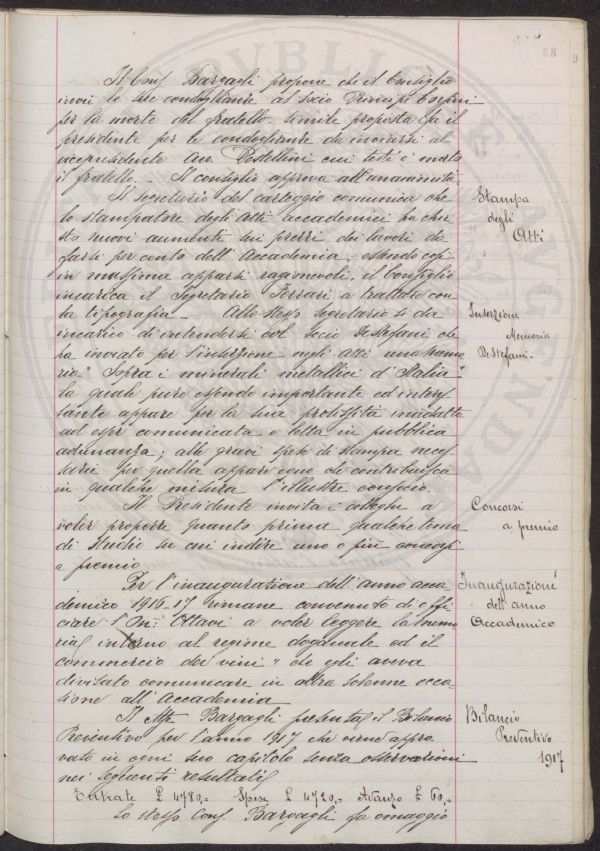 88
Il Cons. Bargagli propone che il Consiglio
invii le sue condoglianze al socio Principe Corsini
per la morte del fratello. simile proposta fa il
presidente per le condoglianze da inviarsi al
vicepresidente Avv. Pestellini cui testè è morto
il fratello. - Il consiglio approva all'unanimità.
Il segretario del carteggio comunica che
lo stampatore degli Atti accademici ha chie
sto nuovi aumenti sui prezzi dei lavori da
farsi per conto dell'Accademia; essendo essi
in massima apparsi ragionevoli, il Consiglio
incarica il Segretario Ferrari a trattare con
la tipografia - Allo stesso segretario si da
incarico di intendersi col Socio De Stefani che
ha inviato per l'inserzione negli Atti una memo
ria "Sopra i minerali metallici d'Italia"
la quale pure essendo importante ed interes
sante appare per la sua prolissità inadatta
ad esser comunicata e letta in pubblica
adunanza; alle gravi spese di stampa neces
sarie per quella appare equo che contribuisca
in qualche misura l'illustre consocio.
Il Presidente invita i colleghi a
voler proporre quanto prima qualche tema
di studio su cui indire uno o più concorsi
a premio
Per l'inaugurazione dell'anno acca
demico 1916-17 rimane convenuto di offi
ciare l'On: Ottavi a voler leggere la memo
ria intorno al regime doganale ed il
commercio dei vini" che egli aveva
divisato comunicare in altra solenne occa
sione all'Accademia
Il Bargagli presenta il Bilancio
Preventivo per l'anno 1917 che viene appro
vato in ogni suo capitolo senza osservazioni
nei seguenti resultati
Entrate £ 4780,= Spese £ 4720,= Avanzo £ 60,=
Lo stesso Cons. Bargagli fa omaggio
Stampa
degli
Atti
Inserzione
Memoria
De Stefani.
Concorsi
a premio
Inaugurazione
dell'anno
Accademico
Bilancio
Preventivo
1917